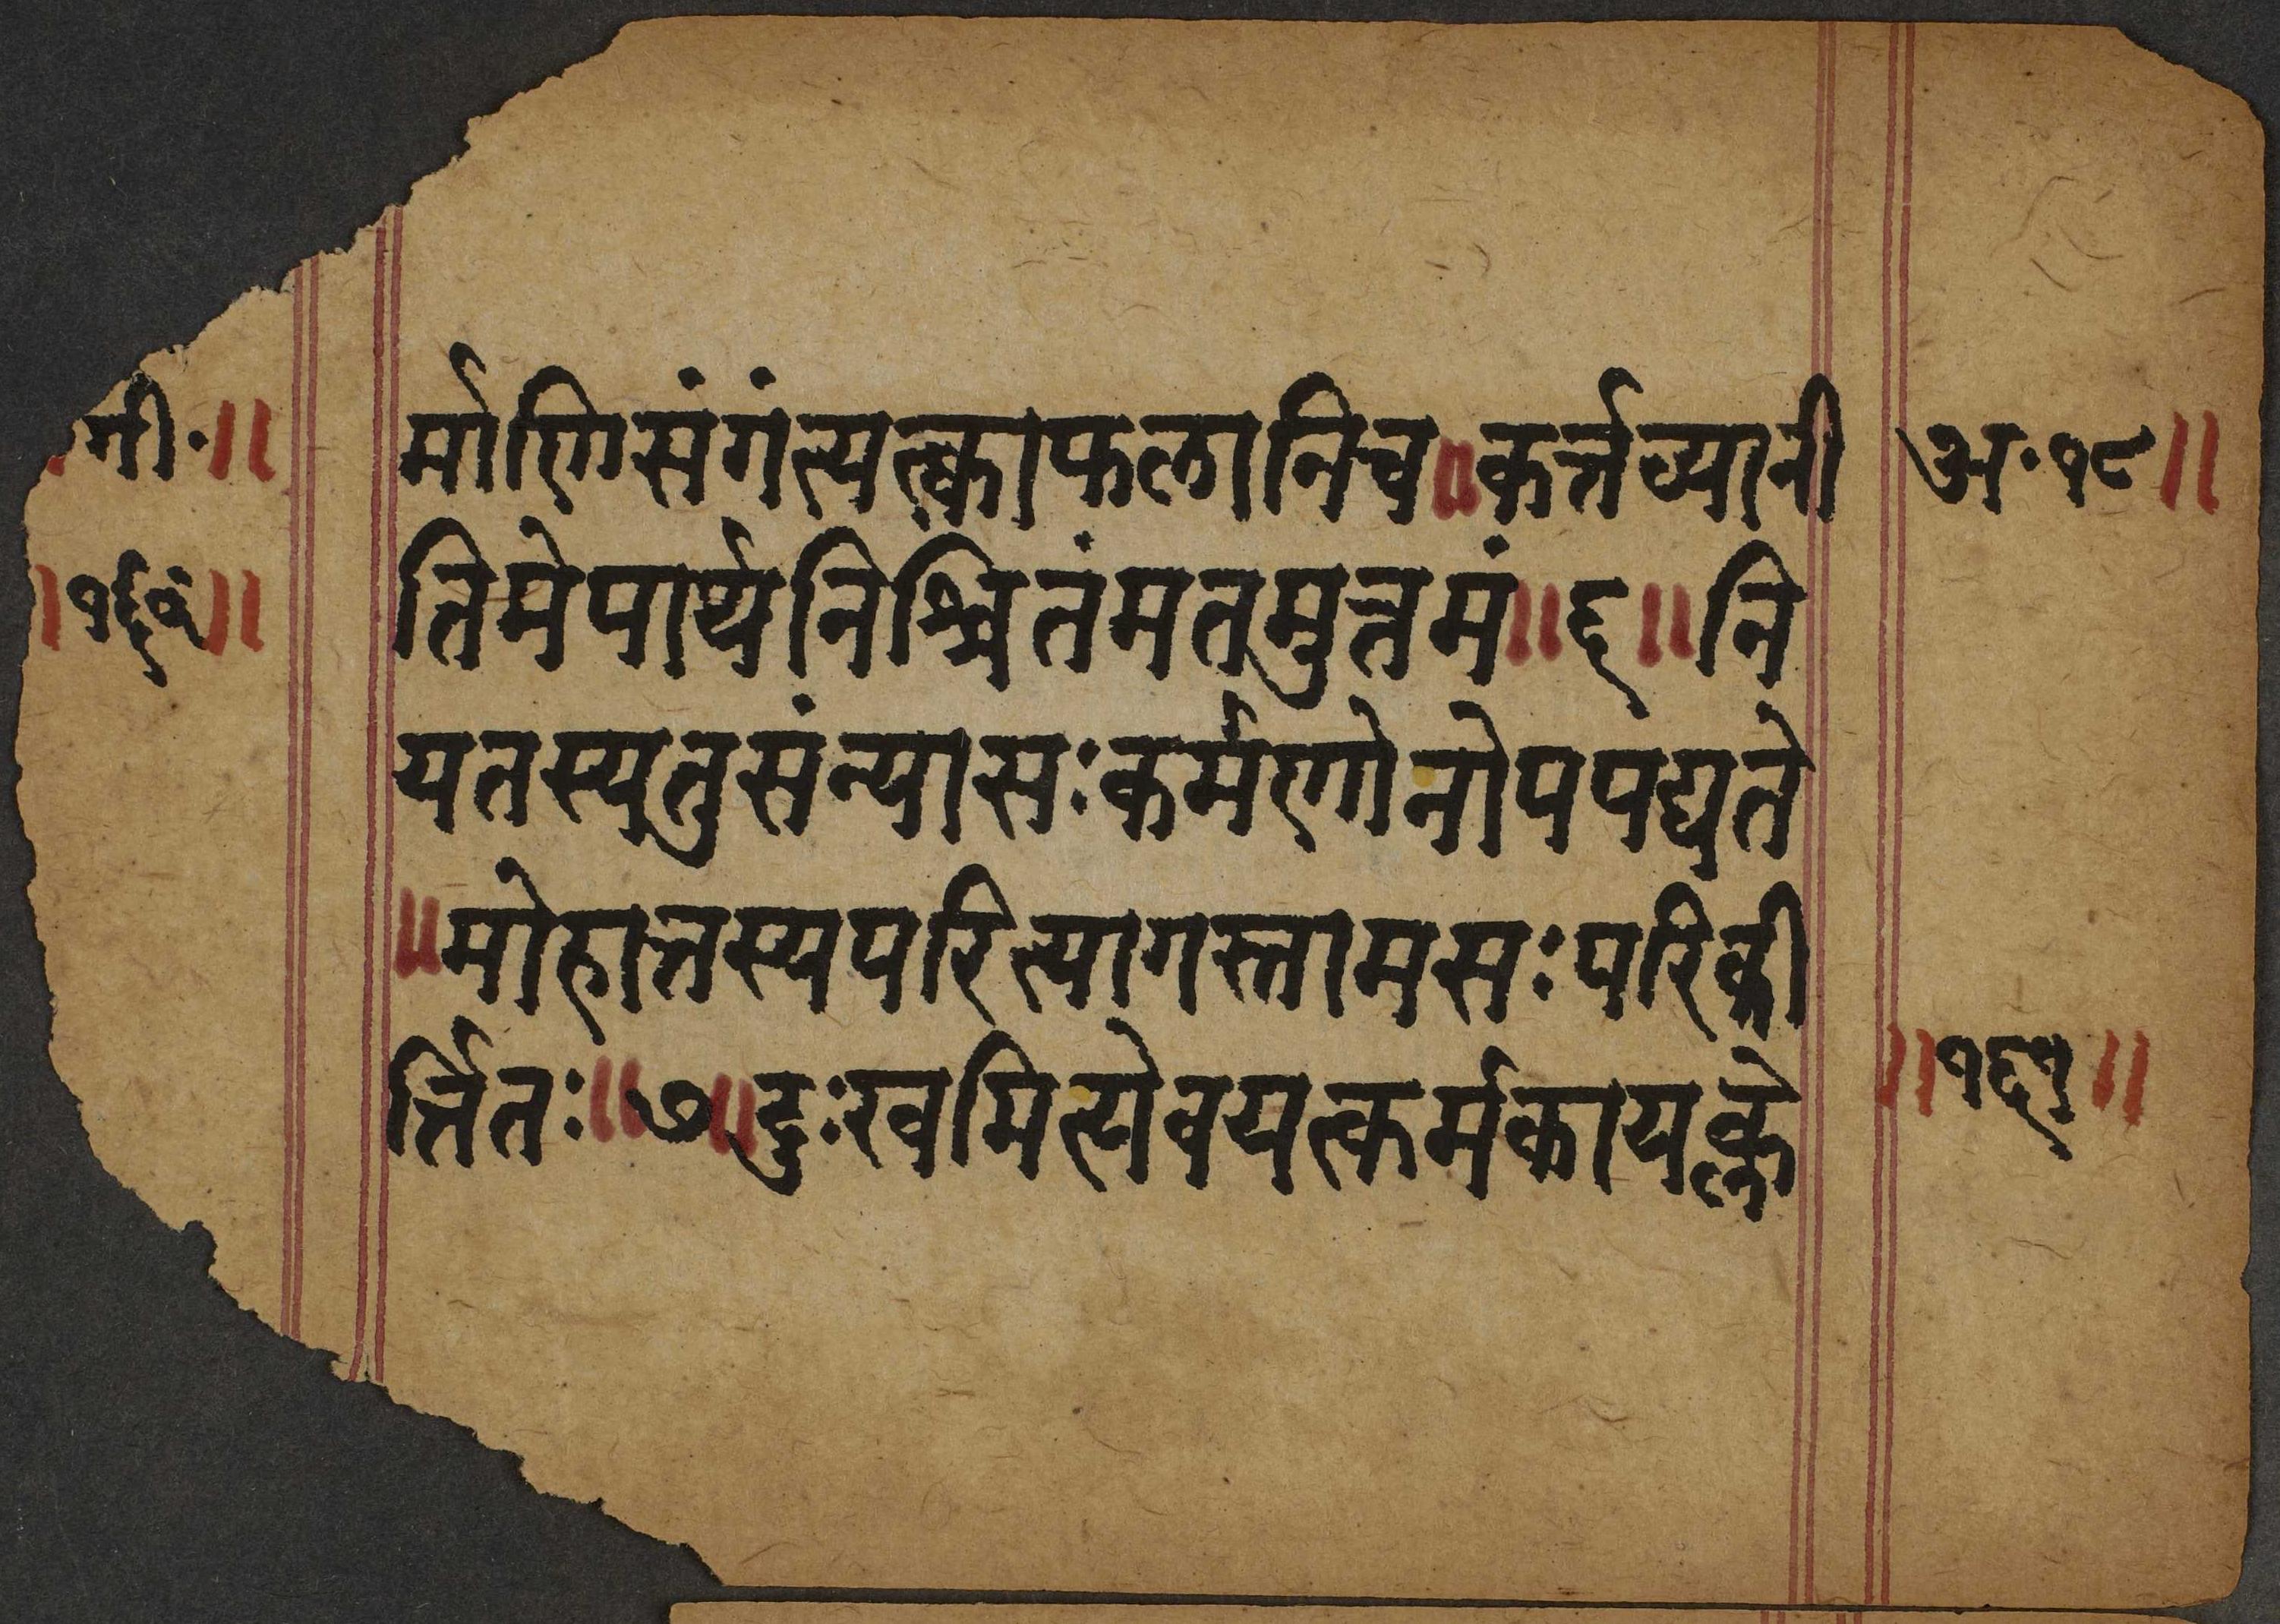 गी॰॥
॥१६१॥
र्माणिसंगंत्यत्क्वाफलानिच॥कर्त्तव्यानी
तिमेपार्थनिश्चितंमतमुत्तमं॥६॥नि
यतस्यतुसंन्यासःकर्मणोनोपपद्यते
॥मोहात्तस्यपरित्यागस्तामसःपरिकी
र्त्तितः॥७॥दुःखमित्येवयत्कर्मकायक्ले
अ॰१८॥
॥१६१॥